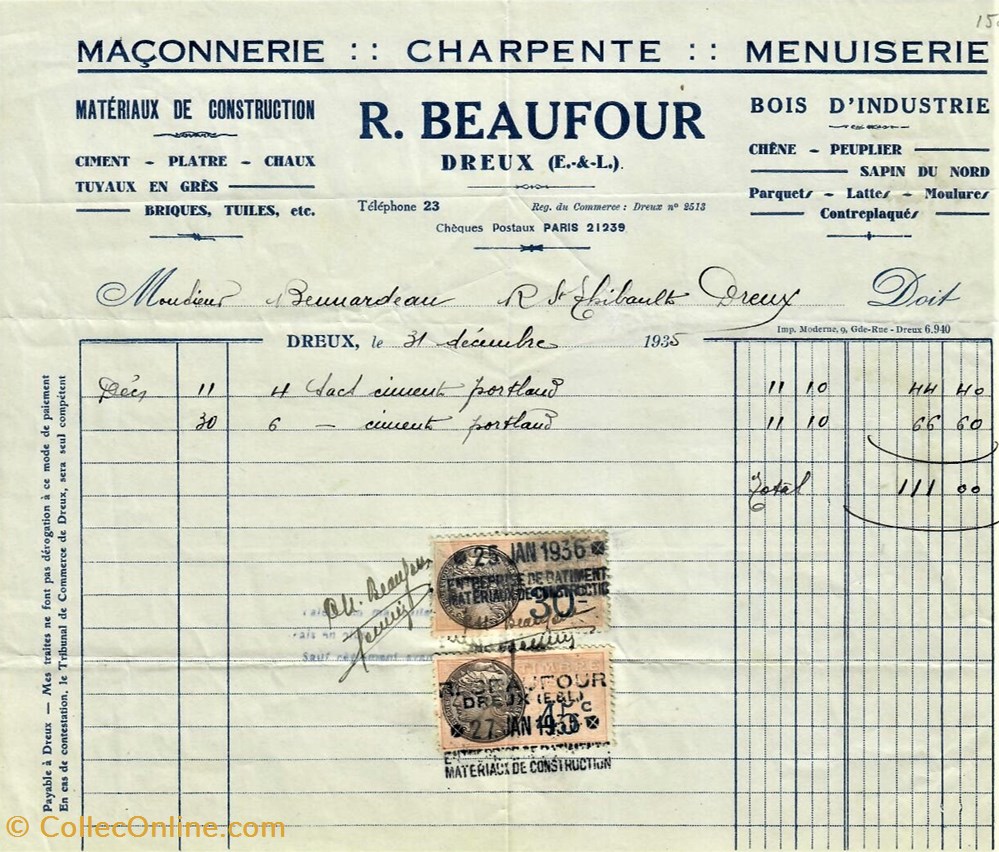 MAÇONNERIE :: CHARPENTE :: MENUISERIE
MATÉRIAUX DE CONSTRUCTION
CIMENT - PLATRE - CHAUX
TUYAUX EN GRÈS
BRIQUES, TUILES, etc.
R. BEAUFOUR
DREUX (E.-&-L.).
Téléphone 23
Reg. du Commerce : Dreux nº 2513
Chèques Postaux PARIS 21239
BOIS D'INDUSTRIE
CHÊNE - PEUPLIER
SAPIN DU NORD
Parquets - Lattes - Moulures
Contreplaqués
Monsieur Bennardeau R St Thibault Dreux Doit
Imp. Moderne, 9, Gde-Rue - Dreux 6.940
DREUX, le 31 décembre 1935
Déc 11 4 sacs ciment portland 11 10 44 40
30 6 - ciment portland 11 10 66 60
Total 111 00
25 JAN 1936
ENTREPRISE DE BATIMENT
MATERIAUX DE CONSTRUCTIO
30
Beaufour
TIMBRE
R. BEAUFOUR
DREUX (E&L)
27 JAN 1936
MATERIAUX DE CONSTRUCTION
Payable à Dreux - Mes traites ne font pas dérogation à ce mode de paiement
En cas de contestation, le Tribunal de Commerce de Dreux, sera seul compétent
© CollecOnline.com